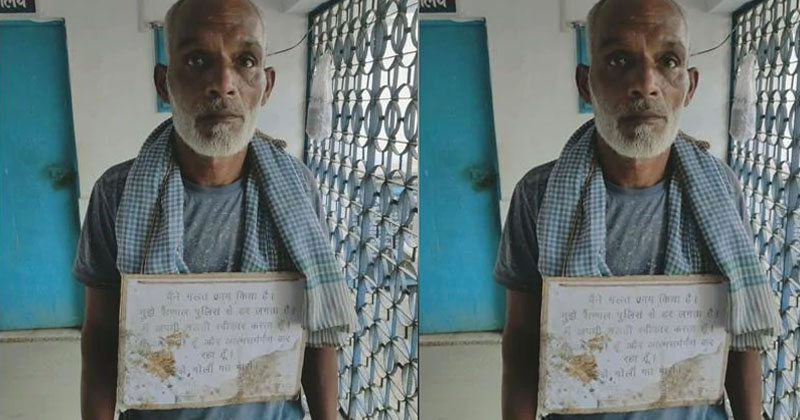 मैंने गलत काम किया है।
मुझे सम्भल पुलिस से डर लगता है।
मैं अपनी गलती स्वीकार करता हूँ।
हूँ और आत्मसमर्पण कर
रहा हूँ।
गोली मत मारो
मैंने गलत काम किया है।
मुझे सम्भल पुलिस से डर लगता है।
मैं अपनी गलती स्वीकार करता हूँ।
हूँ और आत्मसमर्पण कर
रहा हूँ।
गोली मत मारो